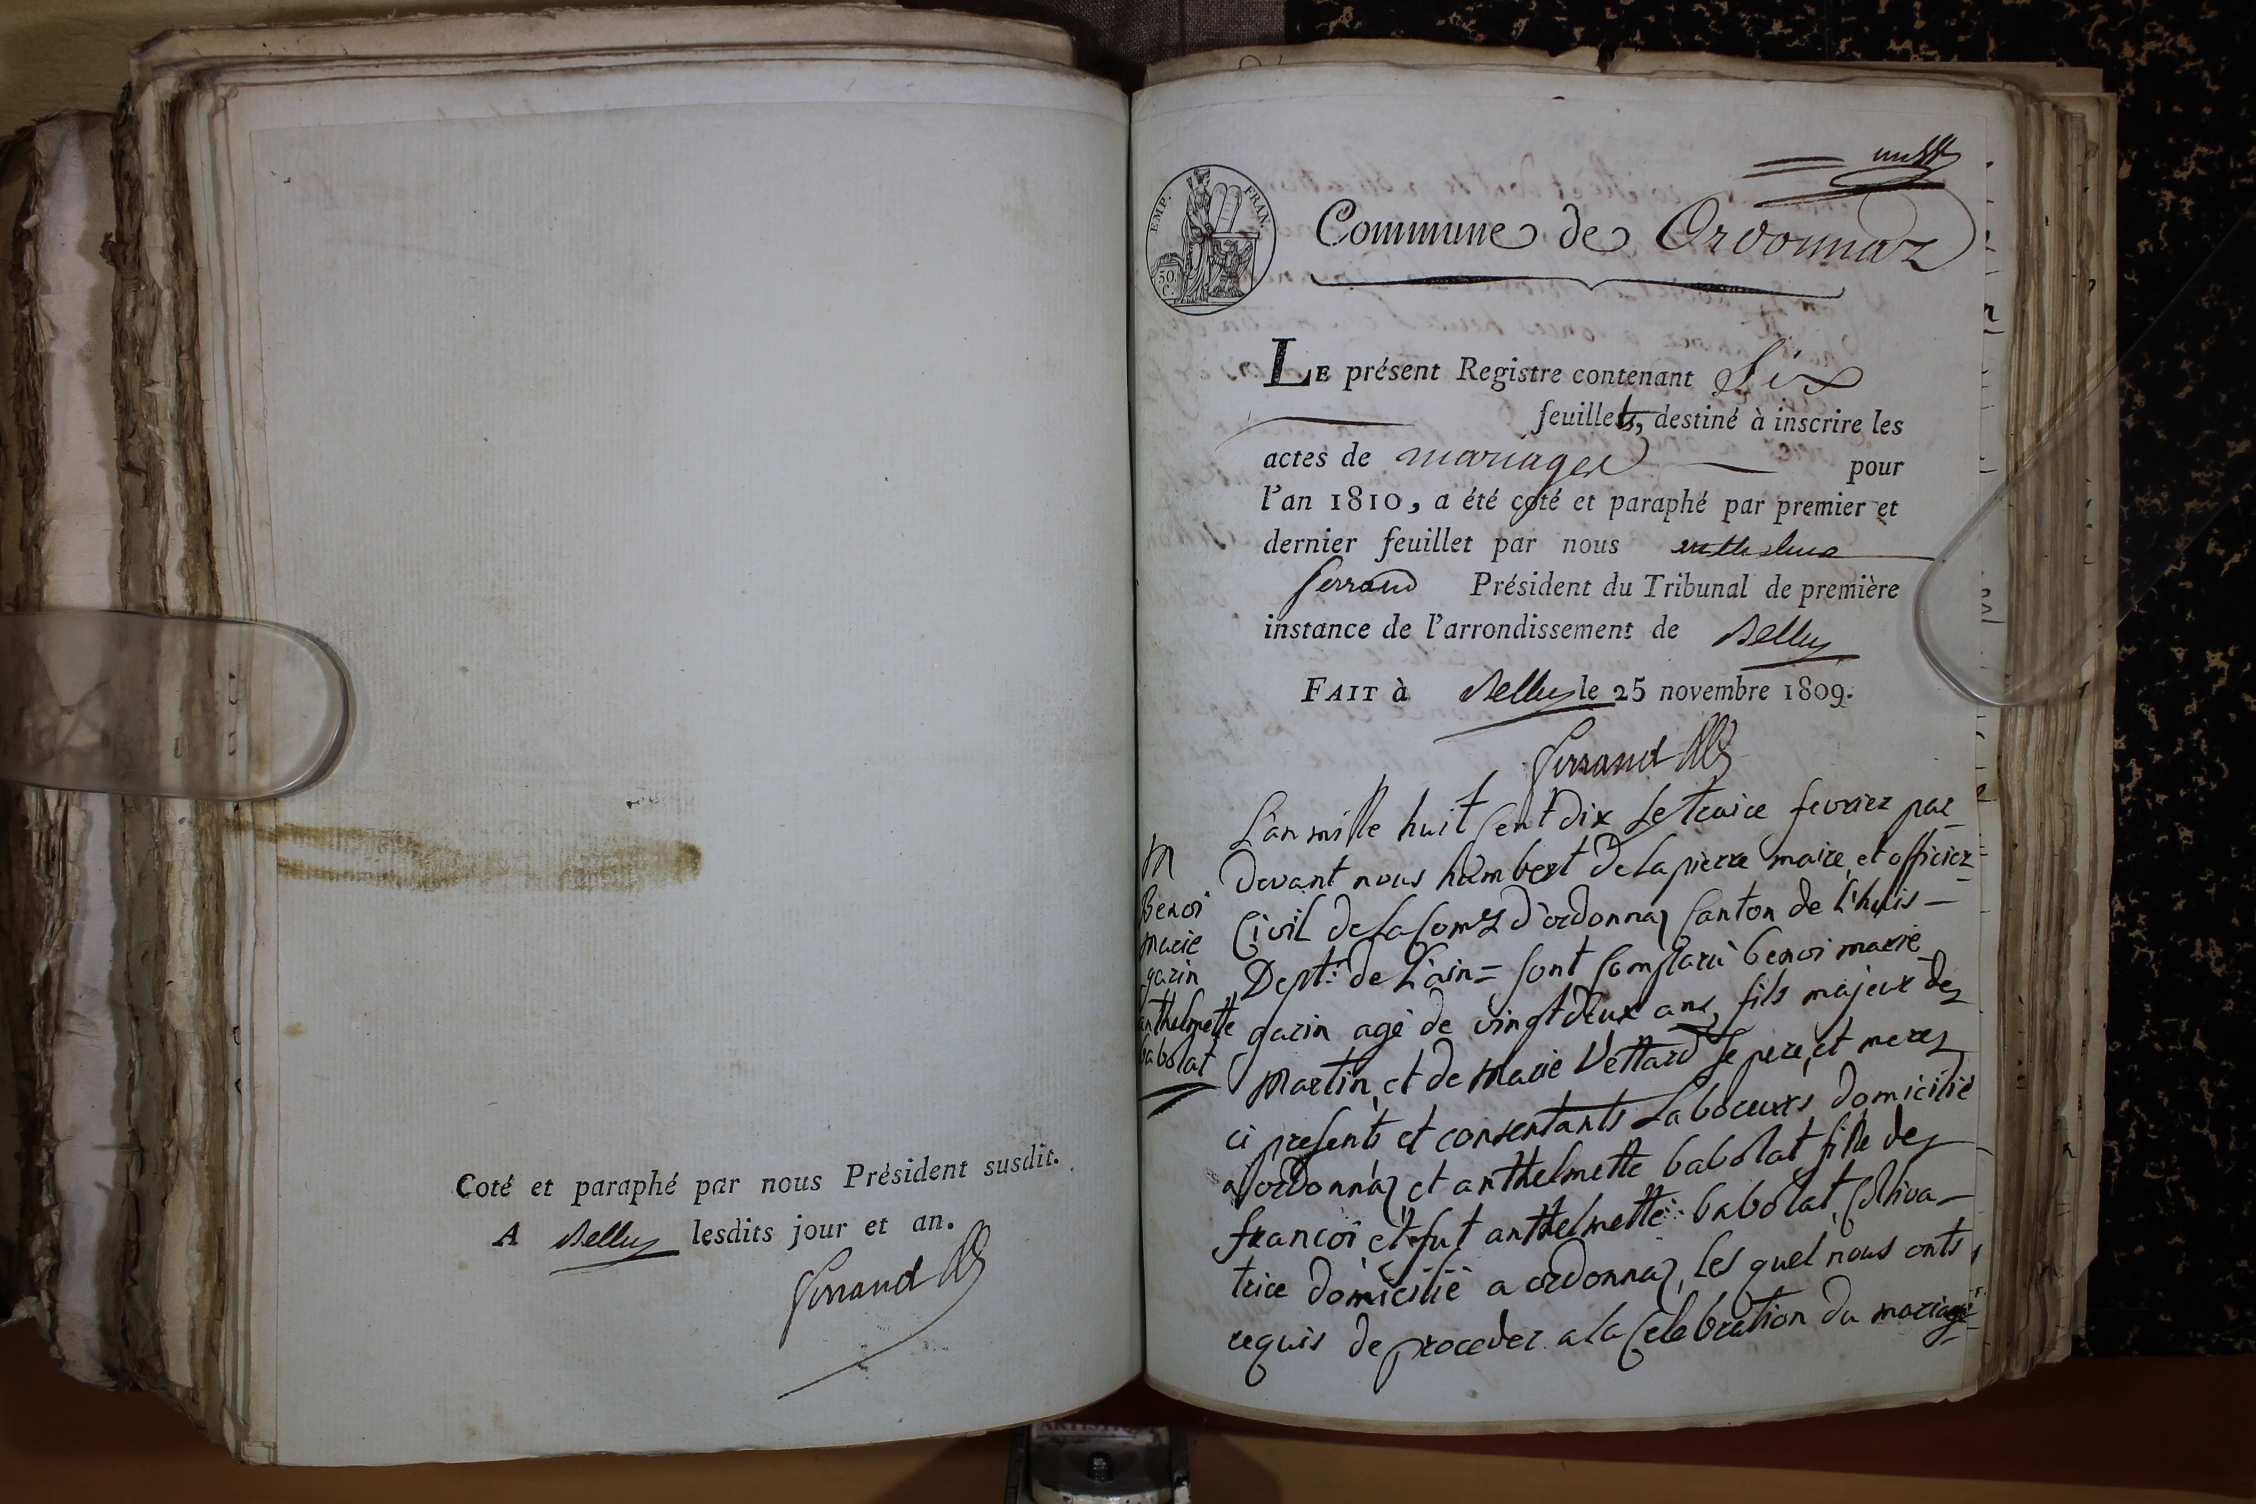 Coté et paraphé par nous Président susdit.
A Belley lesdits jour et an.
Ferrand
EMP. FRAN.
50. C.
Commune de Ordonnaz
LE présent Registre contenant Six
feuillets, destiné à inscrire les
actes de mariages pour
l'an 1810, a été coté et paraphé par premier et
dernier feuillet par nous anthelme
ferrand Président du Tribunal de première
instance de l'arrondissement de Belley
FAIT à Belley le 25 novembre 1809.
Ferrand
M
Benoi
marie
garin
anthelmette
babolat
L'an mille huit cent dix le traice fevrier par
devant nous humbert de Lapierre maire et officier
Civil de la Com.e d'ordonnaz Canton de l'huis
Dept. de L'ain = sont comparu benoi marie
garin agé de vingt deux ans, fils majeur de
Martin et de Marie Vettard le pere et mere
ci presents et consentants Laboceurs domicilié
a ordonnaz et anthelmette babolat fille de
francoi et fut anthelmette babolat, Coltiva-
trice domicilié a ordonnaz, les quel nous onts
requis de proceder a la Celebration du mariage